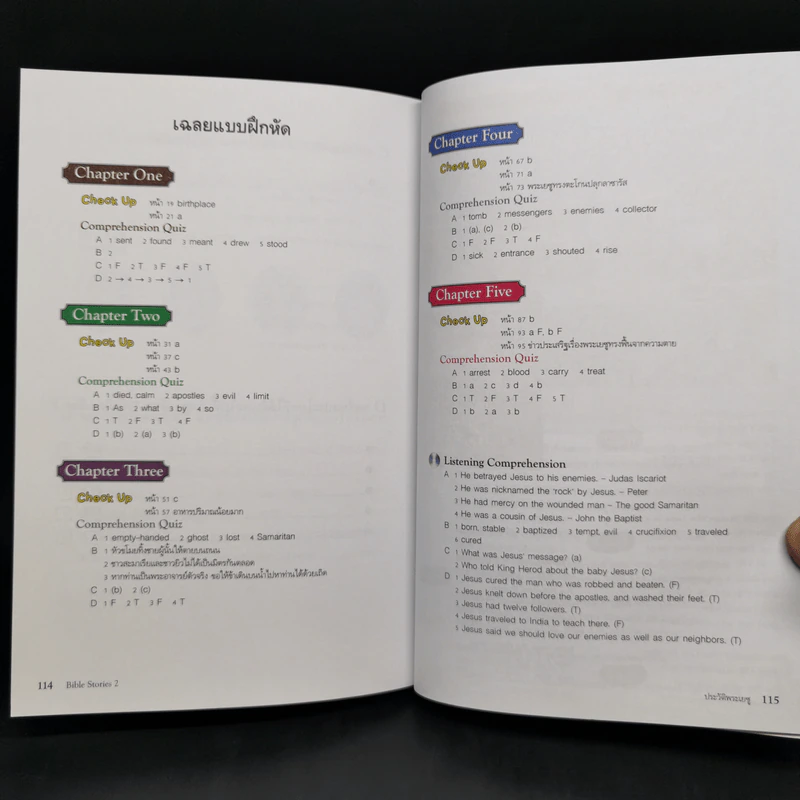 เฉลยแบบฝึกหัด
Chapter One
Check Up หน้า 19 birthplace
หน้า 21 a
Comprehension Quiz
A 1 sent 2 found 3 meant 4 drew 5 stood
B 2
C 1 F 2 T 3 F 4 F 5 T
D 2 → 4 → 3 → 5 → 1
Chapter Two
Check Up หน้า 31 a
หน้า 37 c
หน้า 43 b
Comprehension Quiz
A 1 died, calm 2 apostles 3 evil 4 limit
B 1 As 2 what 3 by 4 so
C 1 T 2 F 3 T 4 F
D 1 (b) 2 (a) 3 (b)
Chapter Three
Check Up หน้า 51 c
หน้า 57 อาหารปริมาณน้อยมาก
Comprehension Quiz
A 1 empty-handed 2 ghost 3 lost 4 Samaritan
B 1 หัวขโมยทิ้งชายผู้นั้นให้ตายบนถนน
2 ชาวสะมาเรียและชาวยิวไม่ได้เป็นมิตรกันตลอด
3 หากท่านเป็นพระอาจารย์ตัวจริง ขอให้ข้าเดินบนน้ำไปหาท่านได้ด้วยเถิด
C 1 (b) 2 (c)
D 1 F 2 T 3 F 4 T
114 Bible Stories 2
Chapter Four
Check Up หน้า 67 b
หน้า 71 a
หน้า 73 พระเยซูทรงตะโกนปลุกลาซารัส
Comprehension Quiz
A 1 tomb 2 messengers 3 enemies 4 collector
B 1 (a), (c) 2 (b)
C 1 F 2 F 3 T 4 F
D 1 sick 2 entrance 3 shouted 4 rise
Chapter Five
Check Up หน้า 87 b
หน้า 93 a F, b F
หน้า 95 ข่าวประเสริฐเรื่องพระเยซูทรงฟื้นจากความตาย
Comprehension Quiz
A 1 arrest 2 blood 3 carry 4 treat
B 1 a 2 c 3 d 4 b
C 1 T 2 F 3 T 4 F 5 T
D 1 b 2 a 3 b
Listening Comprehension
A 1 He betrayed Jesus to his enemies. – Judas Iscariot
2 He was nicknamed the 'rock' by Jesus. – Peter
3 He had mercy on the wounded man – The good Samaritan
4 He was a cousin of Jesus. – John the Baptist
B 1 born, stable 2 baptized 3 tempt, evil 4 crucifixion 5 traveled
6 cured
C 1 What was Jesus' message? (a)
2 Who told King Herod about the baby Jesus? (c)
D 1 Jesus cured the man who was robbed and beaten. (F)
2 Jesus knelt down before the apostles, and washed their feet. (T)
3 Jesus had twelve followers. (T)
4 Jesus traveled to India to teach there. (F)
5 Jesus said we should love our enemies as well as our neighbors. (T)
ประวัติพระเยซู 115